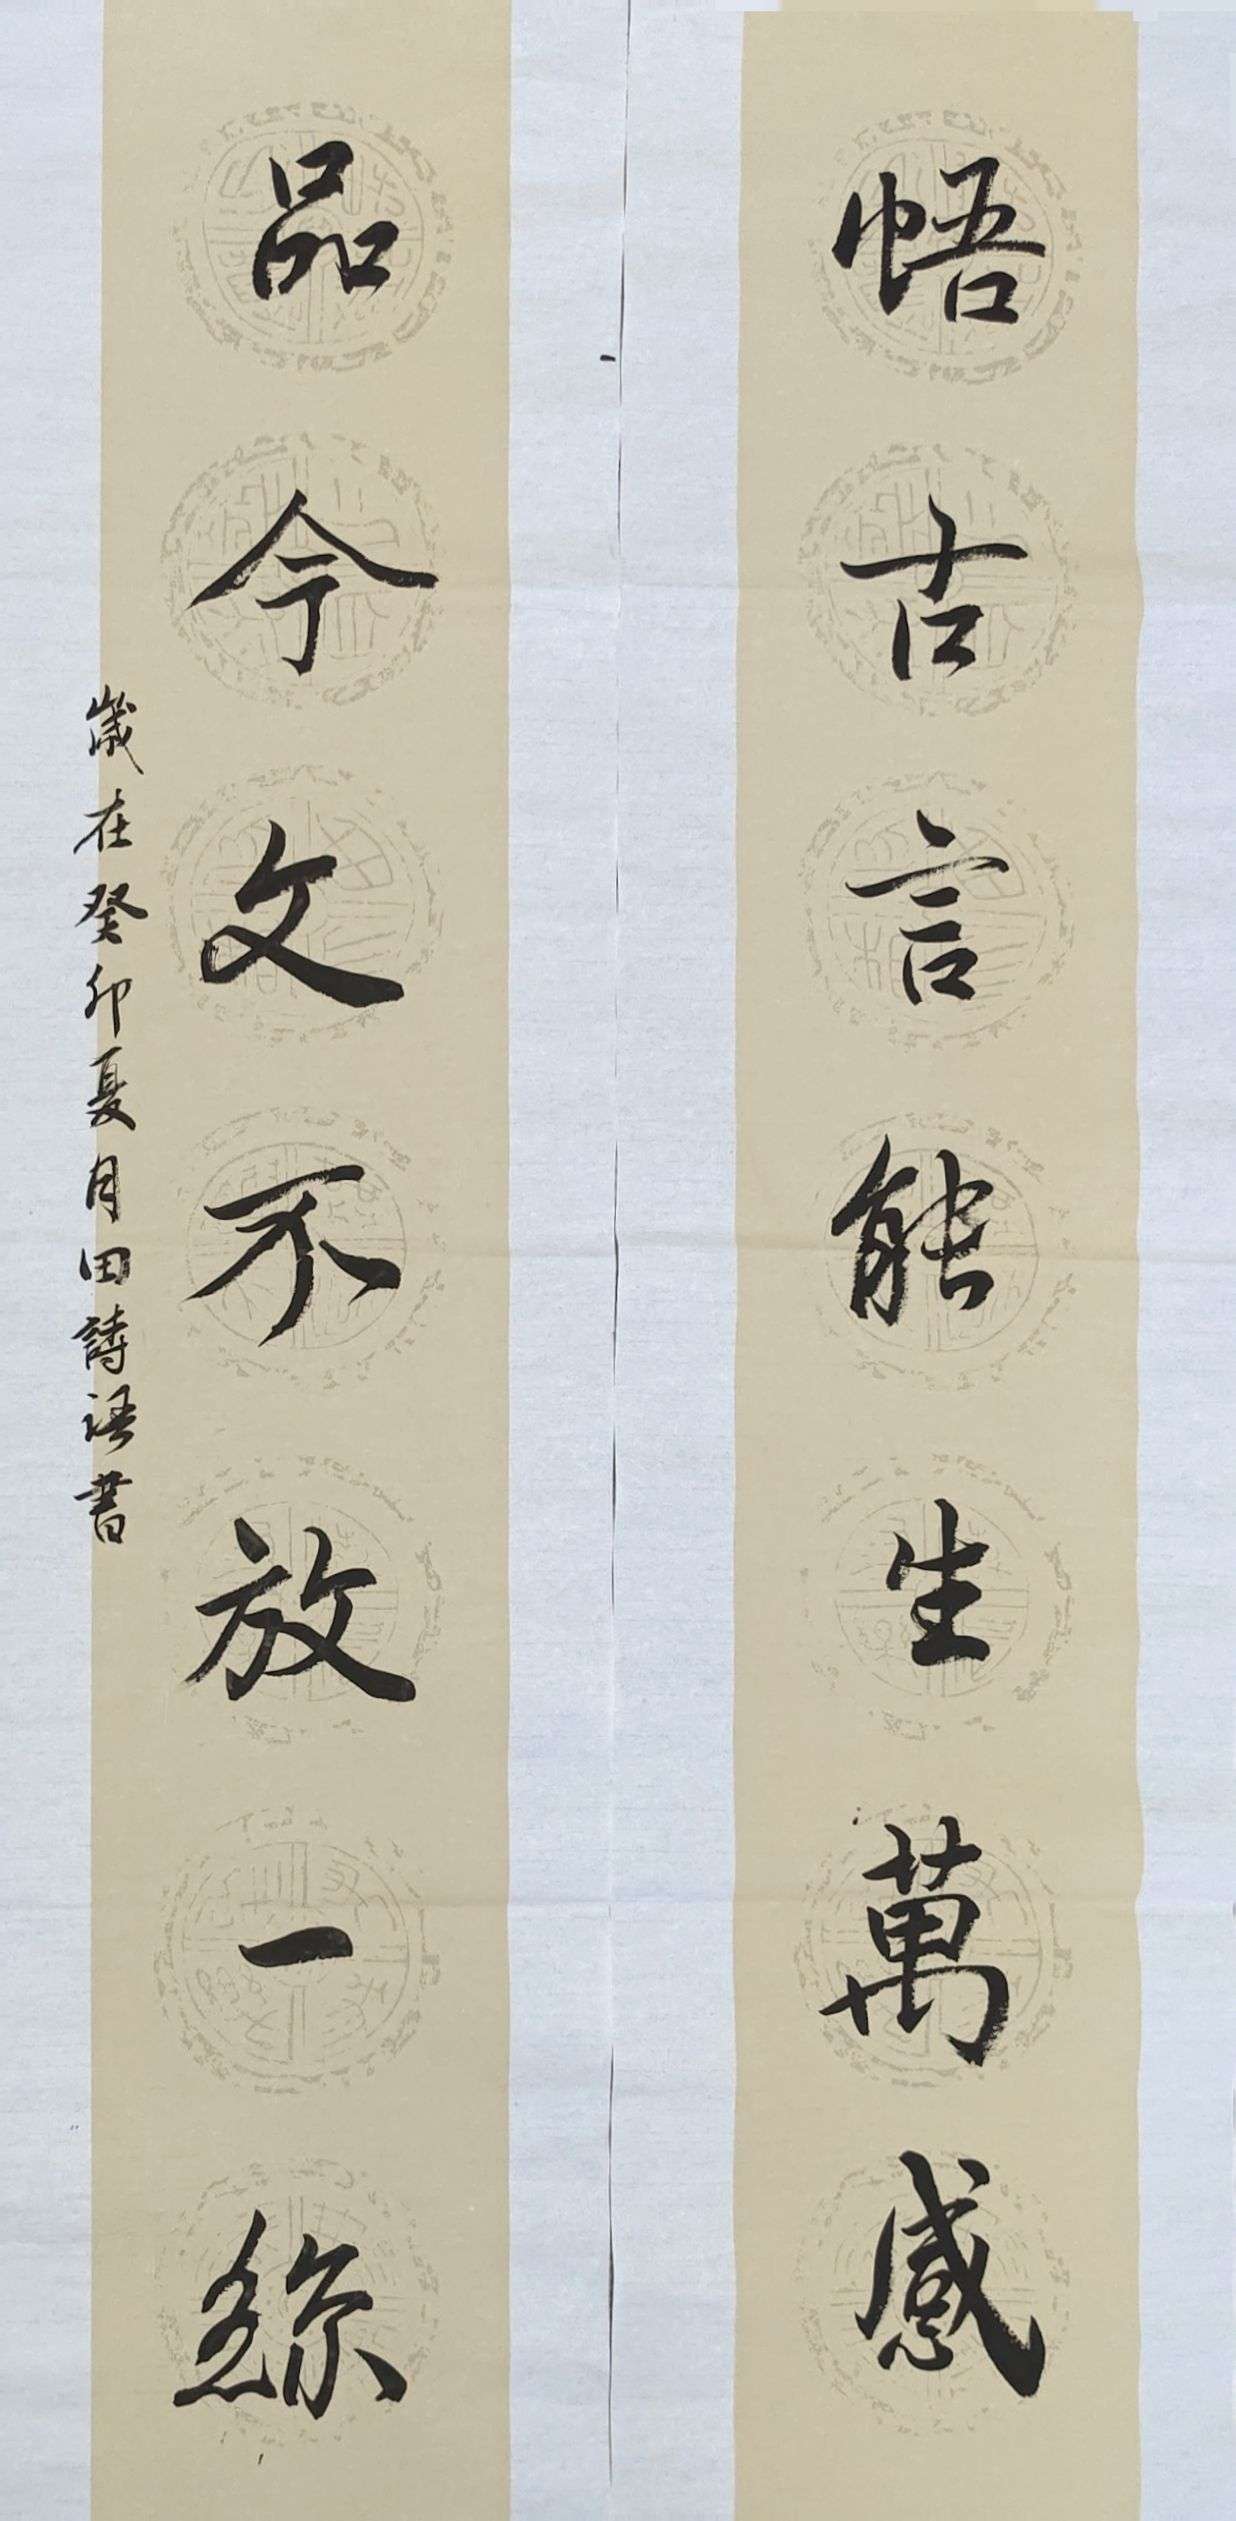 悟古言能生萬感
品今文不放一絲
歲在癸卯夏月田詩語書